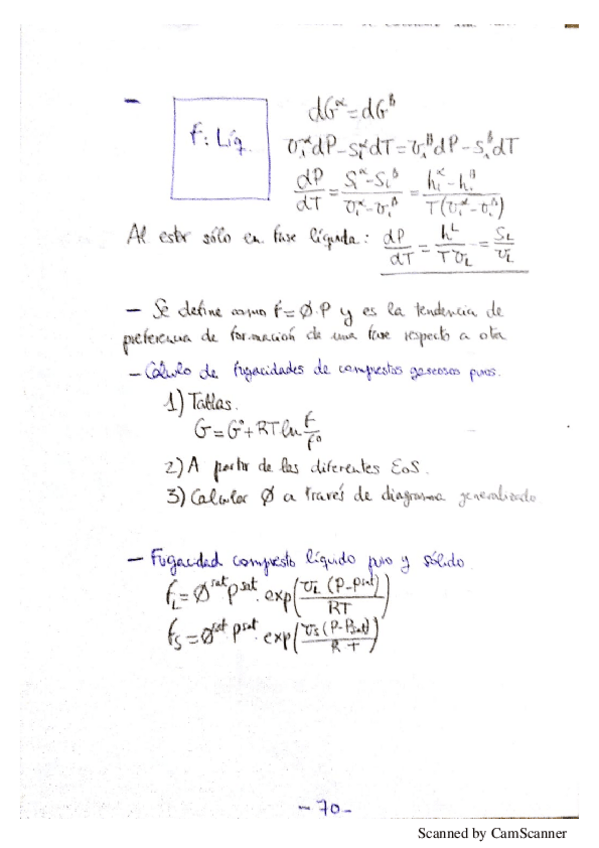 - f: Líq.
dGᵅ = dGᴮ
vᵢᵅdP - sᵢᵅdT = vᵢᴮdP - sᵢᴮdT
dP/dT = (Sᵢᵅ - Sᵢᴮ)/(vᵢᵅ - vᵢᴮ) = (hᵢᵅ - hᵢᴮ)/(T(vᵢᵅ - vᵢᴮ))
Al estar sólo en fase líquida: dP/dT = hᴸ/(T v_L) = S_L/v_L
- Se define como f = Ø·P y es la tendencia de
preferencia de formación de una fase respecto a otra
- Cálculo de fugacidades de compuestos gaseosos puros.
1) Tablas.
G = G° + RT ln f/f°
2) A partir de las diferentes EoS.
3) Calcular Ø a través de diagrama generalizado
- Fugacidad compuesto líquido puro y sólido.
f_L = Ø^sat P^sat · exp(v_L (P - P^sat)/RT)
f_S = Ø^sat P^sat · exp(v_S (P - P^sat)/RT)
- 70 -
Scanned by CamScanner